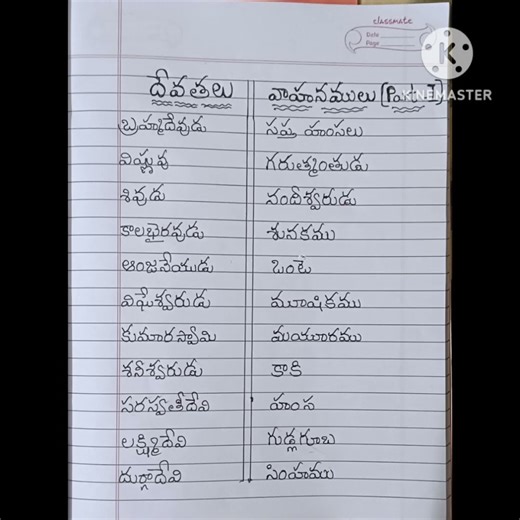 classmate
Date
Page
KINEMASTER
దేవతలు వాహనములు (Part-1)
బ్రహ్మదేవుడు సప్త హంసలు
విష్ణువు గరుత్మంతుడు
శివుడు నందీశ్వరుడు
కాలభైరవుడు శునకము
ఆంజనేయుడు ఒంటె
విఘేశ్వరుడు మూషికము
కుమారస్వామి మయూరము
శనీశ్వరుడు కాకి
సరస్వతీదేవి హంస
లక్ష్మిదేవి గుడ్లగూబ
దుర్గాదేవి సింహము